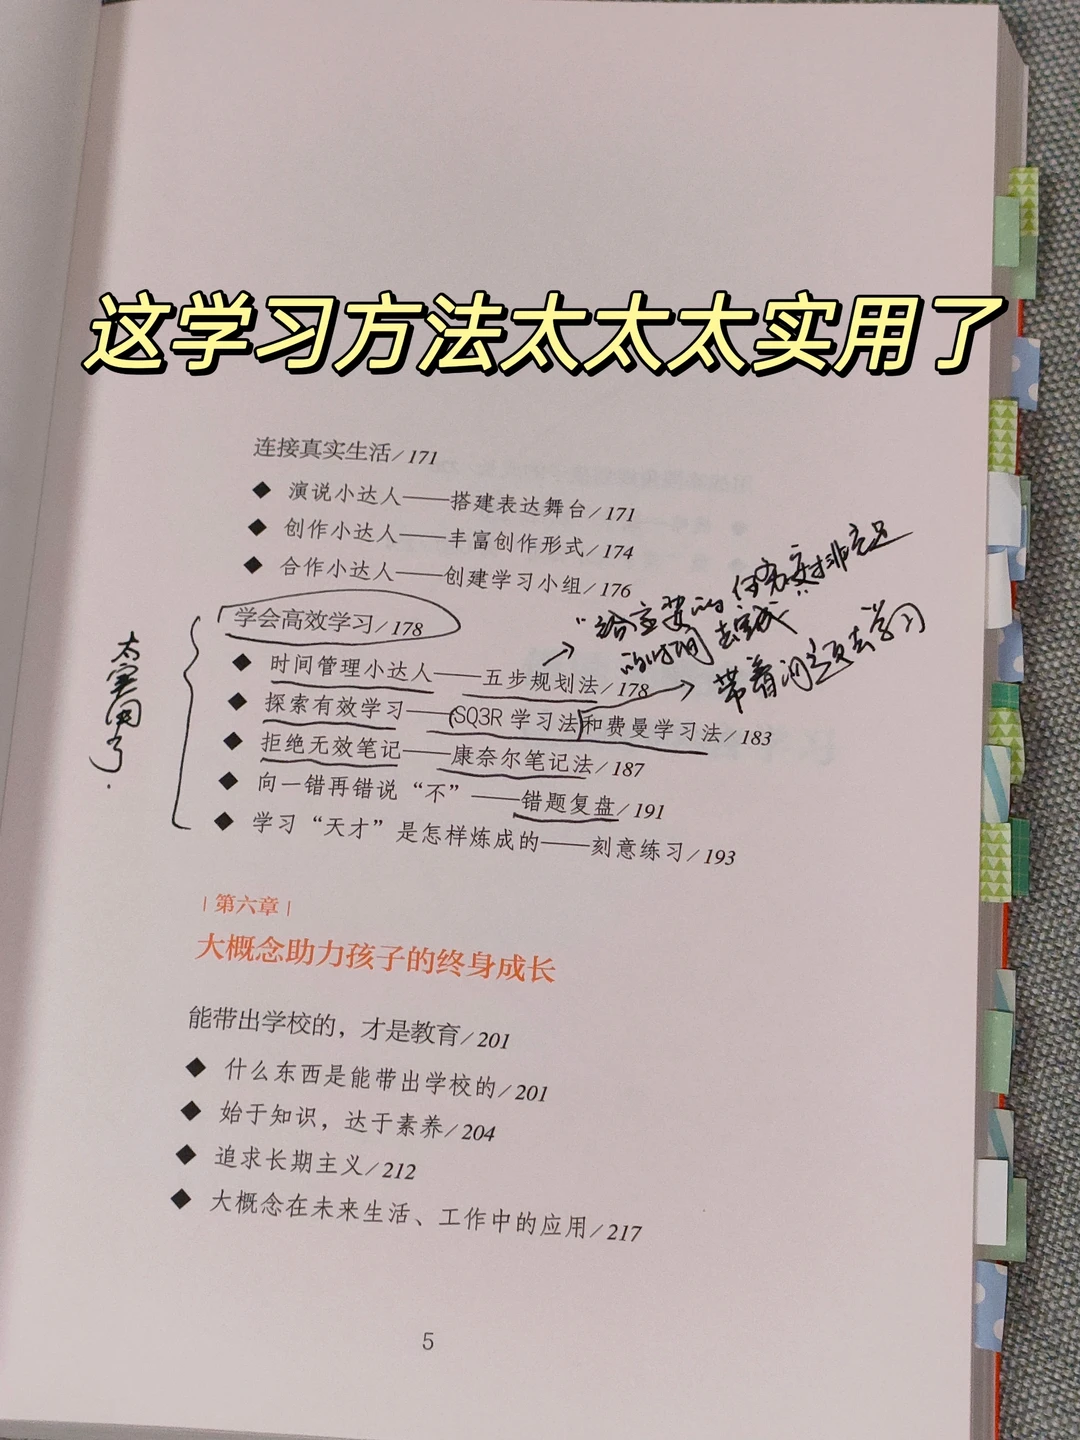 这学习方法太太太实用了
连接真实生活/171
◆ 演说小达人——搭建表达舞台/171
◆ 创作小达人——丰富创作形式/174
◆ 合作小达人——创建学习小组/176
学会高效学习/178
太实用了.
"给重要的任务安排充足
的时间去完成"
◆ 时间管理小达人——五步规划法/178
带着问题去学习
◆ 探索有效学习——(SQ3R 学习法)和费曼学习法/183
◆ 拒绝无效笔记——康奈尔笔记法/187
◆ 向一错再错说“不”——错题复盘/191
◆ 学习“天才”是怎样炼成的——刻意练习/193
|第六章|
大概念助力孩子的终身成长
能带出学校的，才是教育/201
◆ 什么东西是能带出学校的/201
◆ 始于知识，达于素养/204
◆ 追求长期主义/212
◆ 大概念在未来生活、工作中的应用/217
5